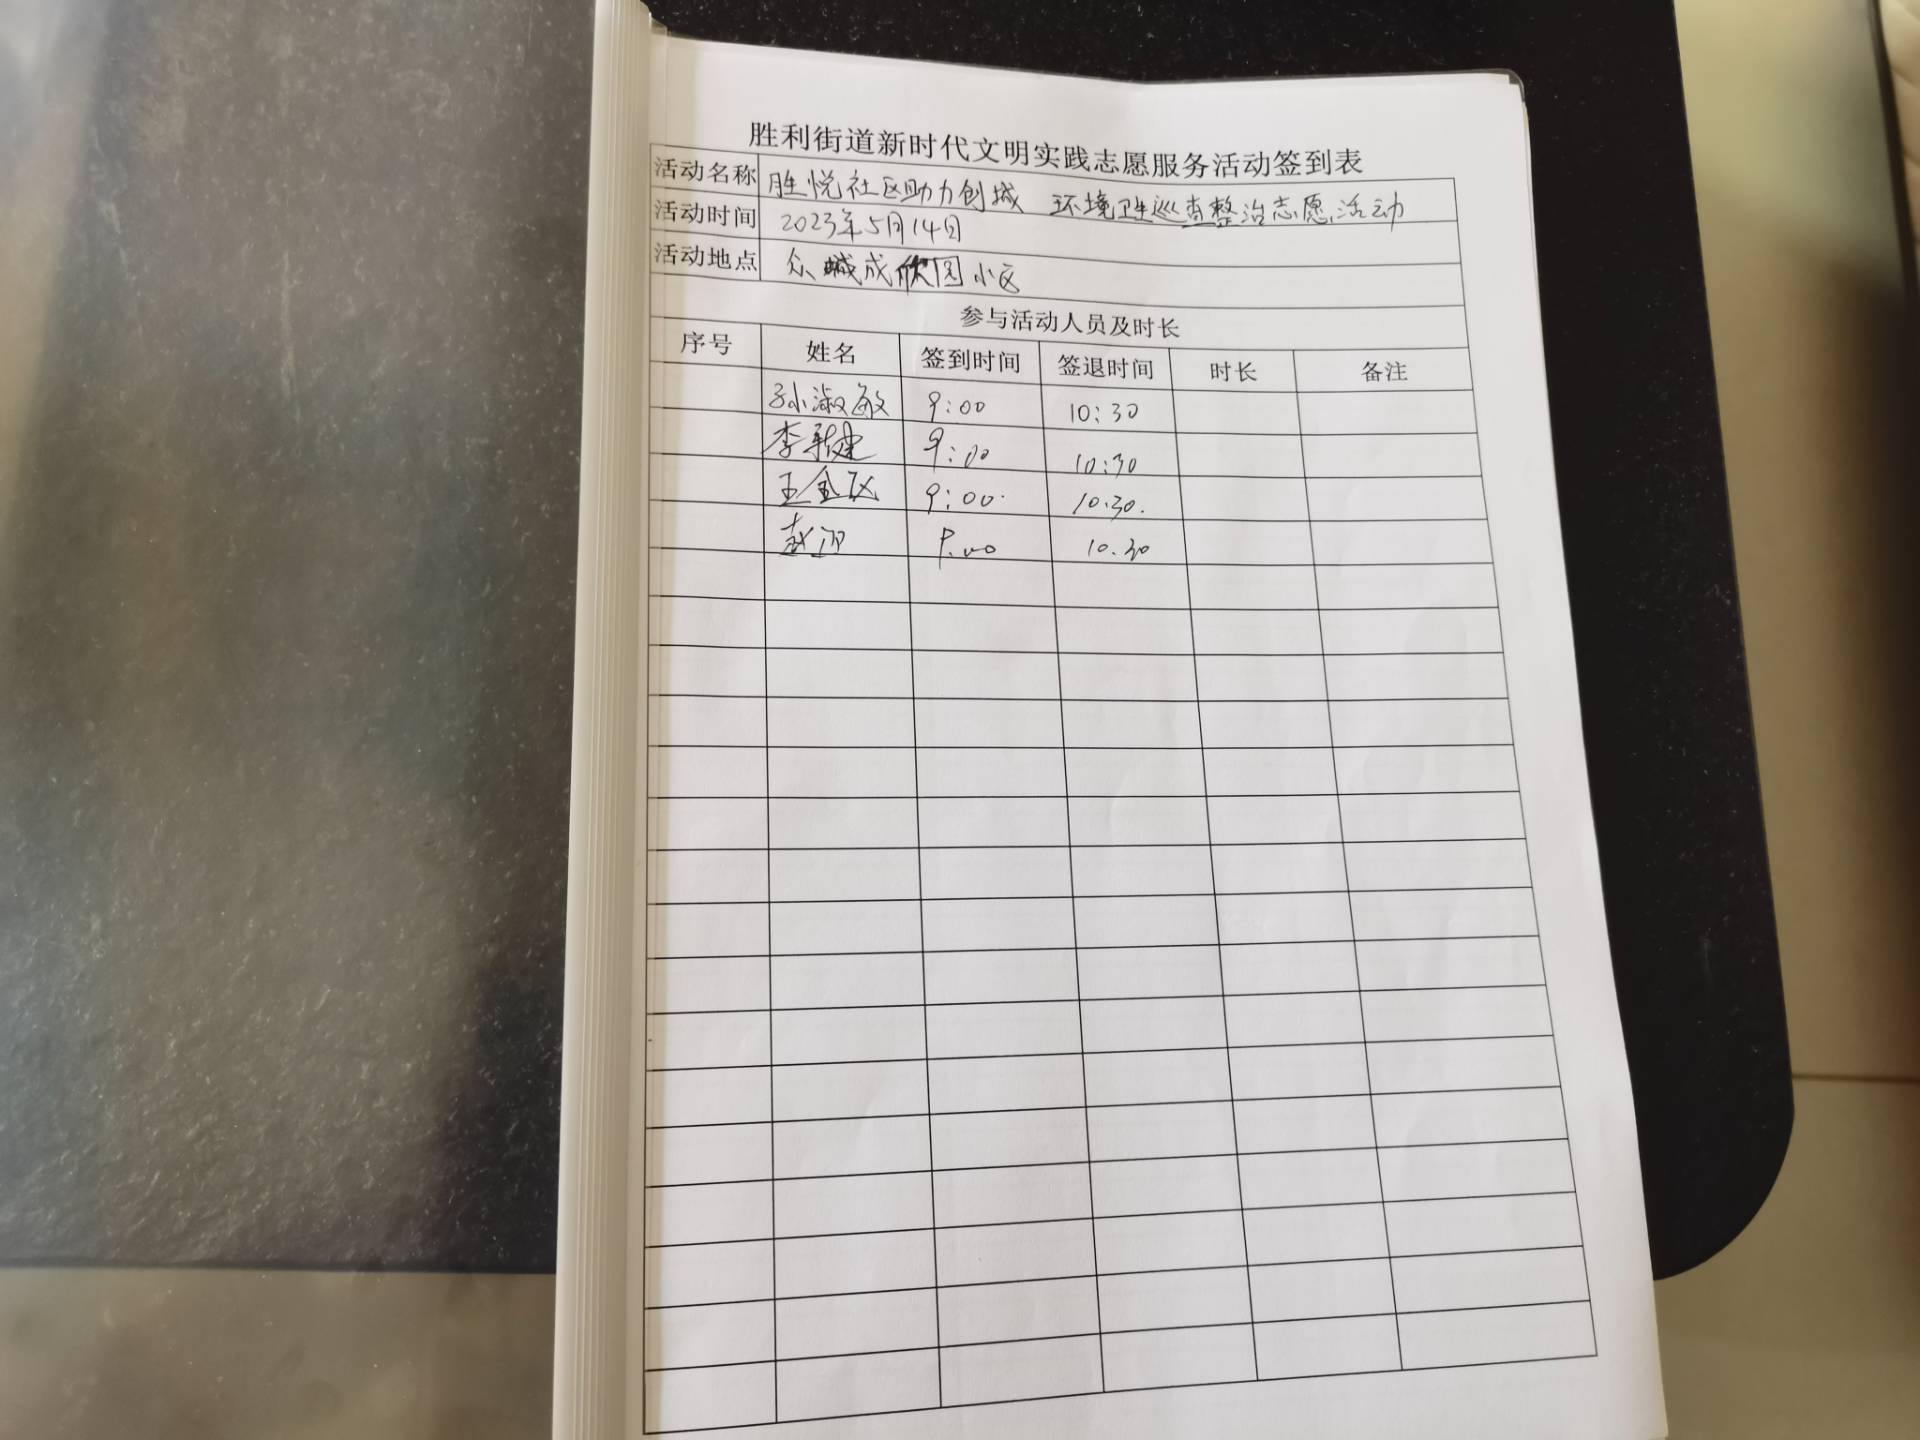 胜利街道新时代文明实践志愿服务活动签到表
活动名称 胜悦社区助力创城 环境卫生巡查整治志愿活动
活动时间 2023年5月14日
活动地点 众成欣园小区
参与活动人员及时长
序号 姓名 签到时间 签退时间 时长 备注
孙淑敏 9:00 10:30
李新建 9:00 10:30
王金 9:00 10:30.
赵 9.00 10.30